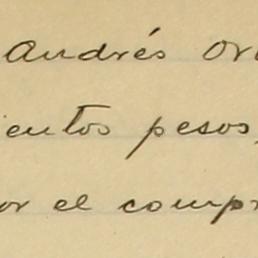 Andrés Oro
ientos pesos,
or el compr